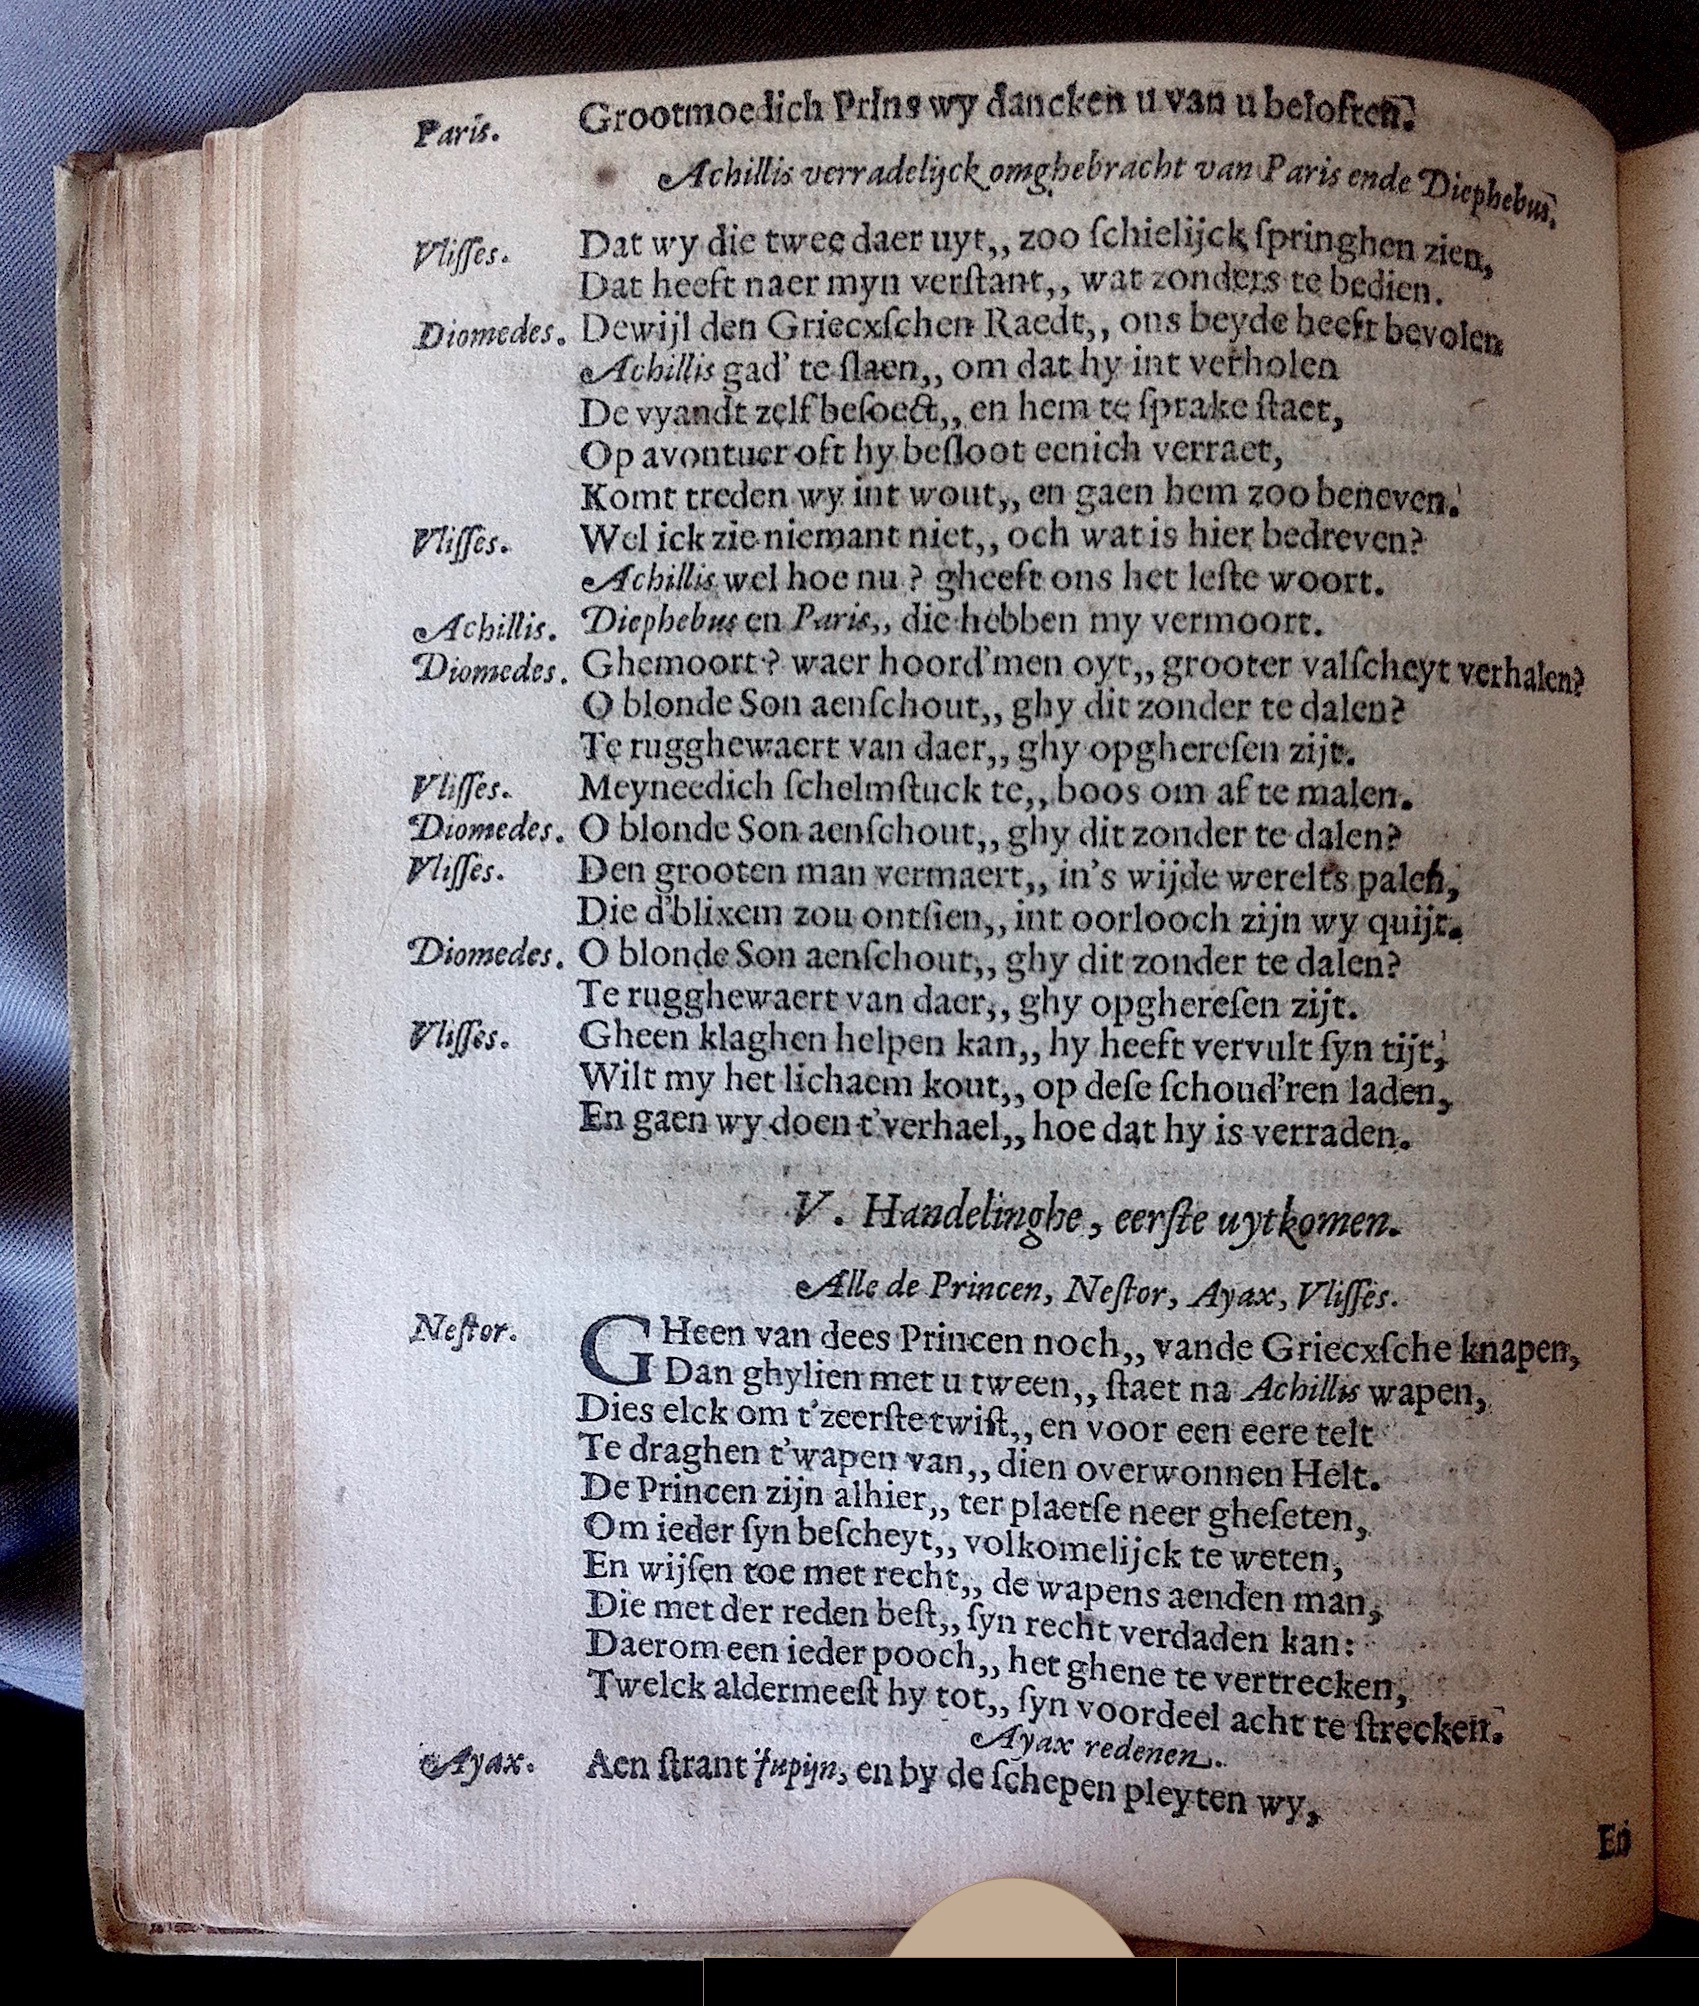 Paris. Grootmoedich Prins wy dancken u van u beloften.
Achillis verradelijck omghebracht van Paris ende Diephebus.
Vlisses. Dat wy die twee daer uyt,, zoo schielijck springhen zien,
Dat heeft naer myn verstant,, wat zonders te bedien.
Diomedes. Dewijl den Griecxschen Raedt,, ons beyde heeft bevolen
Achillis gad' te slaen,, om dat hy int verholen
De vyandt zelf besoect,, en hem te sprake staet,
Op avontuer oft hy besloot eenich verraet,
Komt treden wy int wout,, en gaen hem zoo beneven.
Vlisses. Wel ick zie niemant niet,, och wat is hier bedreven?
Achillis wel hoe nu? gheeft ons het leste woort.
Achillis. Diephebus en Paris,, die hebben my vermoort.
Diomedes. Ghemoort? waer hoord'men oyt,, grooter valscheyt verhalen?
O blonde Son aenschout,, ghy dit zonder te dalen?
Te rugghewaert van daer,, ghy opgheresen zijt.
Vlisses. Meyneedich schelmstuck te,, boos om af te malen.
Diomedes. O blonde Son aenschout,, ghy dit zonder te dalen?
Vlisses. Den grooten man vermaert,, in's wijde werelts palen,
Die d'blixem zou ontsien,, int oorlooch zijn wy quijt.
Diomedes. O blonde Son aenschout,, ghy dit zonder te dalen?
Te rugghewaert van daer,, ghy opgheresen zijt.
Vlisses. Gheen klaghen helpen kan,, hy heeft vervult syn tijt,
Wilt my het lichaem kout,, op dese schoud'ren laden,
En gaen wy doen t'verhael,, hoe dat hy is verraden.
V. Handelinghe, eerste uytkomen.
Alle de Princen, Nestor, Ayax, Vlisses.
Nestor. GHeen van dees Princen noch,, vande Griecxsche knapen,
Dan ghylien met u tween,, staet na Achillis wapen,
Dies elck om t'zeerste twist,, en voor een eere telt
Te draghen t'wapen van,, dien overwonnen Helt.
De Princen zijn alhier,, ter plaetse neer gheseten,
Om ieder syn bescheyt,, volkomelijck te weten,
En wijsen toe met recht,, de wapens aenden man,
Die met der reden best,, syn recht verdaden kan:
Daerom een ieder pooch,, het ghene te vertrecken,
Twelck aldermeest hy tot,, syn voordeel acht te strecken.
Ayax redenen.
Ayax. Aen strant Jupijn, en by de schepen pleyten wy,
En